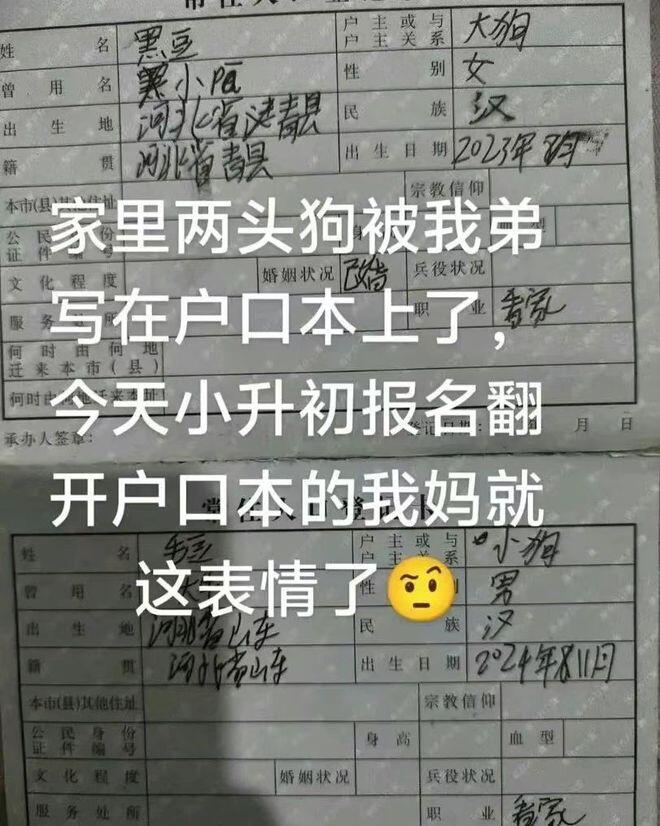 姓名 黑豆 户主或与户主关系 大狗
曾用名 小 性别 女
出生地 河北省 青县 民族 汉
籍贯 河北省青县 出生日期 2023年
本市(县)其他住址 宗教信仰
家里两头狗被我弟
公民身份证件编号 身 型
文化程度 婚姻状况 已婚 兵役状况
写在户口本上了，
服务处 职业 看家
何时由何地迁来本市(县)
今天小升初报名翻
何时由何地迁来本址
承办人签章： 登记日期： 年 月 日
开户口本的我妈就
常住人口登记卡
姓名 毛豆 户主或与户主关系 小狗
这表情了🤨
曾用名 大 性别 男
出生地 河北省山东 民族 汉
籍贯 河北省山东 出生日期 2024年8月11日
本市(县)其他住址 宗教信仰
公民身份证件编号 身高 血型
文化程度 婚姻状况 兵役状况
服务处所 职业 看家